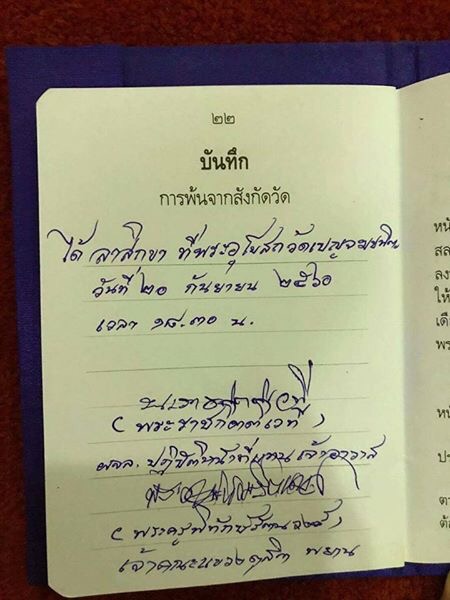 ๒๒
บันทึก
การพ้นจากสังกัดวัด
ได้ ลาสิกขา ที่พระอุโบสถวัดเบญจมบพิตร
วันที่ ๒๐ กันยายน ๒๕๖๐
เวลา ๑๘.๓๐ น.
(พระราช
ผจล. ปฏิบัติหน้าที่แทนเจ้าอาวาส
(พระครูพิทักษ์
เจ้าคณะแขวงดุสิต พยาน
หนั
สล
ลง
ให้
เดื
พร
หน้
ปร
ตา
ต้อ